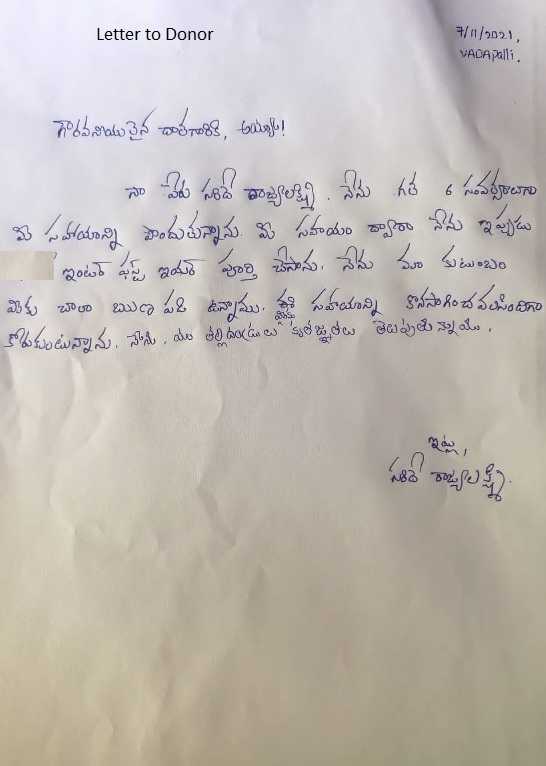 Letter to Donor
7/11/2021,
VADAPalli.
గౌరవనీయులైన దాతగారికి, అయ్యా!
నా పేరు సరిదే రాజ్యలక్ష్మి. నేను గత 6 సంవత్సరాలుగా
మీ సహాయాన్ని పొందుతున్నాను. మీ సహాయం ద్వారా నేను ఇప్పుడు
ఇంటర్ ఫస్ట్ ఇయర్ పూర్తి చేసాను. నేను మా కుటుంబం
మీకు చాలా ఋణ పడి ఉన్నాము. ఈ సహాయాన్ని కొనసాగించవలసిందిగా
కోరుకుంటున్నాను. నేను, మా తల్లిదండ్రులు మీకు కృతజ్ఞతలు తెలుపుతున్నాము.
ఇట్లు,
సరిదే రాజ్యలక్ష్మి.